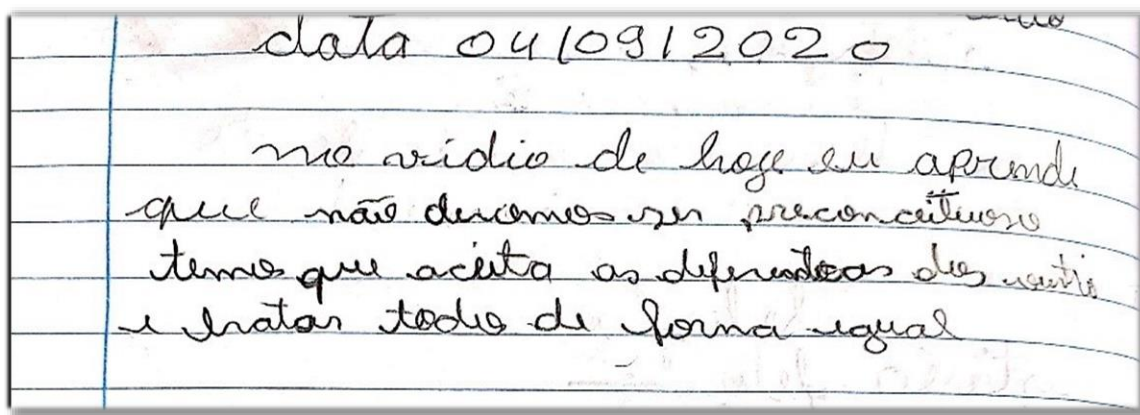 data 04/09/2020
no vidio de hoge eu aprende
que não devemos ser preconceituoso
temos que aceita as diferencas dos
e tratar todos de forma egual